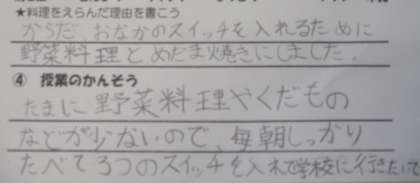 ★料理をえらんだ理由を書こう
からだ、おなかのスイッチを入れるために
野菜料理とめだま焼きにしました。
④ 授業のかんそう
たまに野菜料理やくだもの
などが少ないので、毎朝しっかり
たべて3つのスイッチを入れて学校に行きたいで